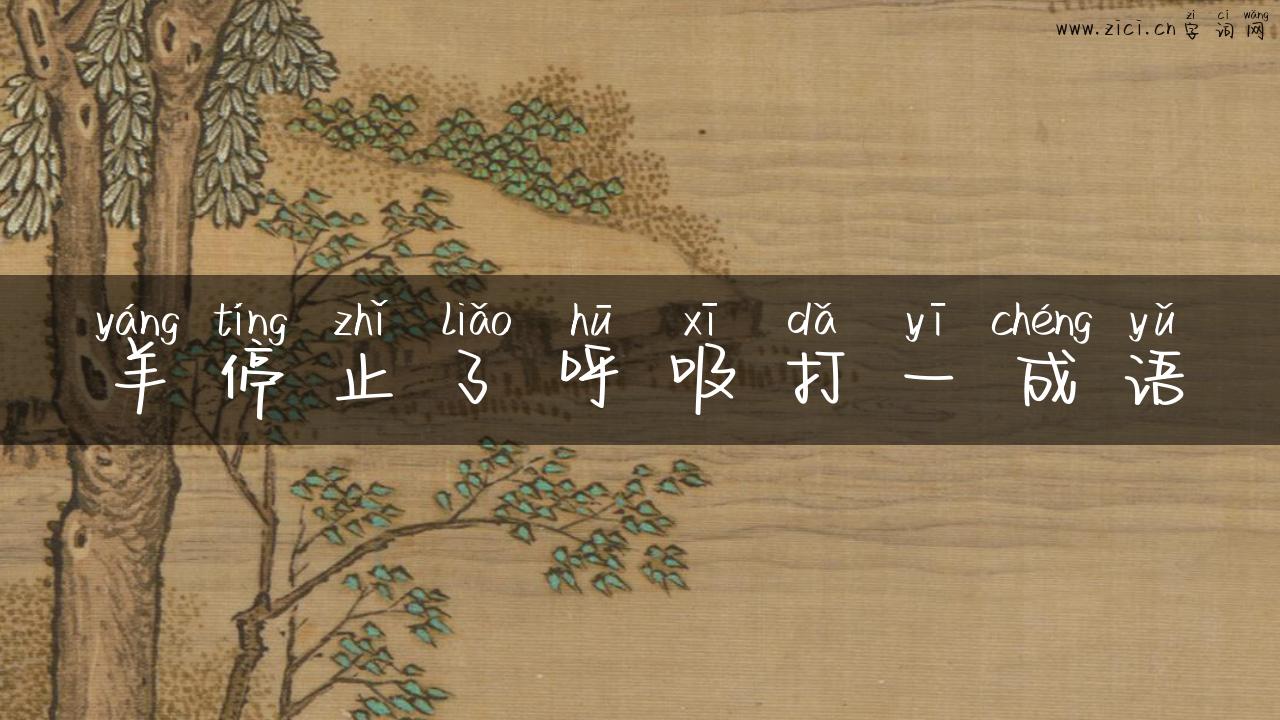 zì cí wǎng
www.zici.cn 字词网
yáng tíng zhǐ liǎo hū xī dǎ yī chéng yǔ
羊停止了呼吸打一成语